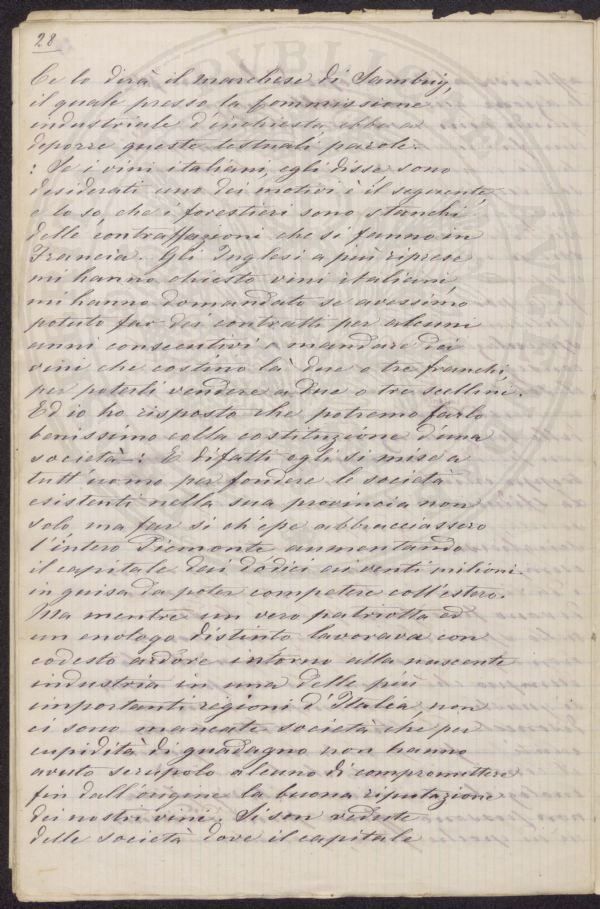 28
Ce lo dirà il marchese di Sambuy,
il quale presso la Commissione
industriale d'inchiesta ebbe a
deporre queste testuali parole.
: Se i vini italiani, egli disse sono
desiderati uno dei motivi è il seguente,
e lo so, che i forestieri sono stanchi
delle contraffazioni che si fanno in
Francia. Gli Inglesi a più riprese
mi hanno chiesto vini italiani,
mi hanno domandato se avessimo
potuto far dei contratti per alcuni
anni consecutivi e mandare dei
vini che costino là due o tre franchi,
per poterli vendere a due o tre scellini.
Ed io ho risposto che potremo farlo
benissimo colla costituzione d'una
società : E difatti egli si mise a
tutt'uomo per fondere le società
esistenti nella sua provincia non
solo ma far si ch'esse abbracciassero
l'intero Piemonte aumentando
il capitale dai dodici ai venti milioni
in guisa da poter competere coll'estero.
Ma mentre un vero patriotta ed
un enologo distinto lavorava con
codesto ardore intorno alla nascente
industria in una delle più
importanti regioni d'Italia, non
ci sono mancate società che per
cupidità di guadagno non hanno
avuto scrupolo alcuno di compromettere
fin dall'origine la buona riputazione
dei nostri vini. Si son vedute
delle società dove il capitale